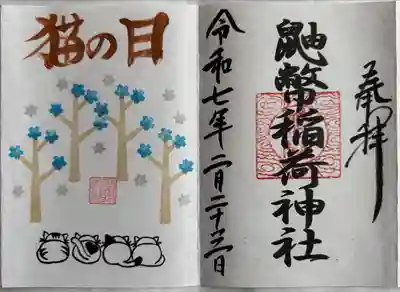 猫の日
奉拝
鼬幣稲荷神社
令和七年二月二十二日